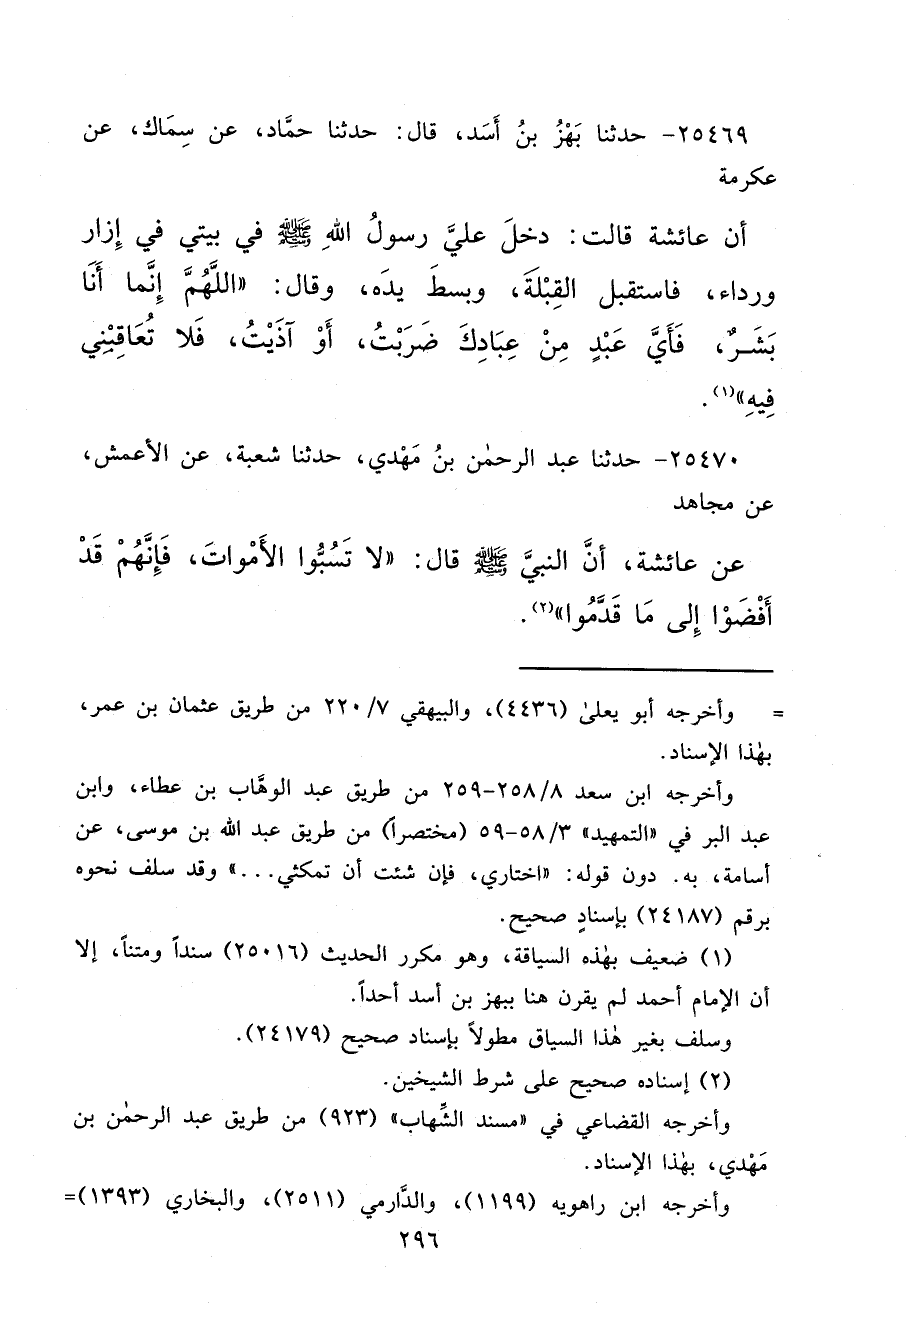 ٢٥٤٦٩- حدثنا بَهْزُ بنُ أَسَد، قال: حدثنا حمَّاد، عن سِمَاك، عن
عكرمة
أن عائشة قالت: دخلَ عليَّ رسولُ اللهِ ﷺ في بيتي في إزار
ورداء، فاستقبل القِبْلَةَ، وبسطَ يدَه، وقال: «اللَّهُمَّ إنَّما أَنَا
بَشَرٌ، فَأَيَّ عَبْدٍ مِنْ عِبَادِكَ ضَرَبْتُ، أَوْ آذَيْتُ، فَلا تُعَاقِبْنِي
فِيهِ»(١).
٢٥٤٧٠- حدثنا عبد الرحمٰن بنُ مَهْدي، حدثنا شعبة، عن الأعمش،
عن مجاهد
عن عائشة، أنَّ النبيَّ ﷺ قال: «لا تَسُبُّوا الأَمْواتَ، فَإِنَّهُمْ قَدْ
أَفْضَوْا إلى مَا قَدَّمُوا»(٢).
= وأخرجه أبو يعلىٰ (٤٤٣٦)، والبيهقي ٢٢٠/٧ من طريق عثمان بن عمر،
بهٰذا الإسناد.
وأخرجه ابن سعد ٢٥٨/٨-٢٥٩ من طريق عبد الوهَّاب بن عطاء، وابن
عبد البر في «التمهيد» ٥٨/٣-٥٩ (مختصراً) من طريق عبد الله بن موسى، عن
أسامة، به. دون قوله: «اختاري، فإن شئت أن تمكثي...» وقد سلف نحوه
برقم (٢٤١٨٧) بإسنادٍ صحيح.
(١) ضعيف بهٰذه السياقة، وهو مكرر الحديث (٢٥٠١٦) سنداً ومتناً، إلا
أن الإمام أحمد لم يقرن هنا ببهز بن أسد أحداً.
وسلف بغير هٰذا السياق مطولاً بإسناد صحيح (٢٤١٧٩).
(٢) إسناده صحيح على شرط الشيخين.
وأخرجه القضاعي في «مسند الشِّهاب» (٩٢٣) من طريق عبد الرحمٰن بن
مَهْدي، بهٰذا الإسناد.
وأخرجه ابن راهويه (١١٩٩)، والدَّارمي (٢٥١١)، والبخاري (١٣٩٣)=
٢٩٦